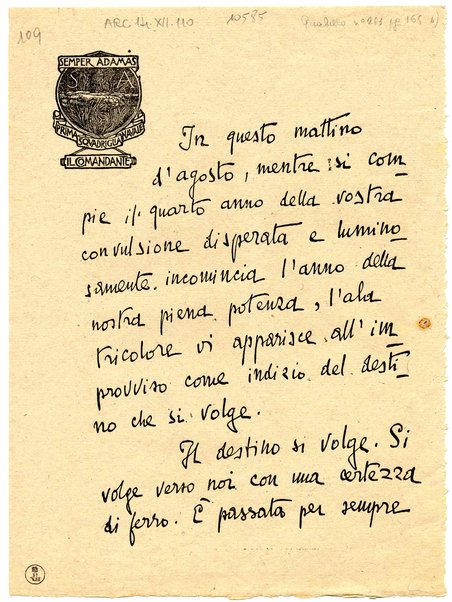 109
ARC 14.XII.110
10585
SEMPER ADAMAS
S A
PRIMA SQUADRIGLIA NAVALE
IL COMANDANTE
In questo mattino
d'agosto, mentre si com
pie il quarto anno della vostra
convulsione disperata e lumino
samente incomincia l'anno della
nostra piena potenza, l'ala
tricolore vi apparisce all'im
provviso come indizio del desti
no che si volge.
Il destino si volge. Si
volge verso noi con una certezza
di ferro. È passata per sempre